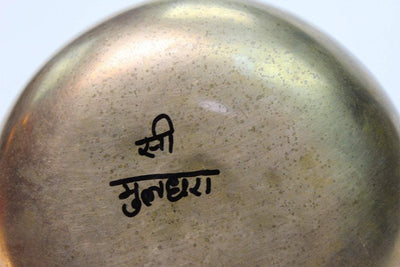 सी
मुलधरा